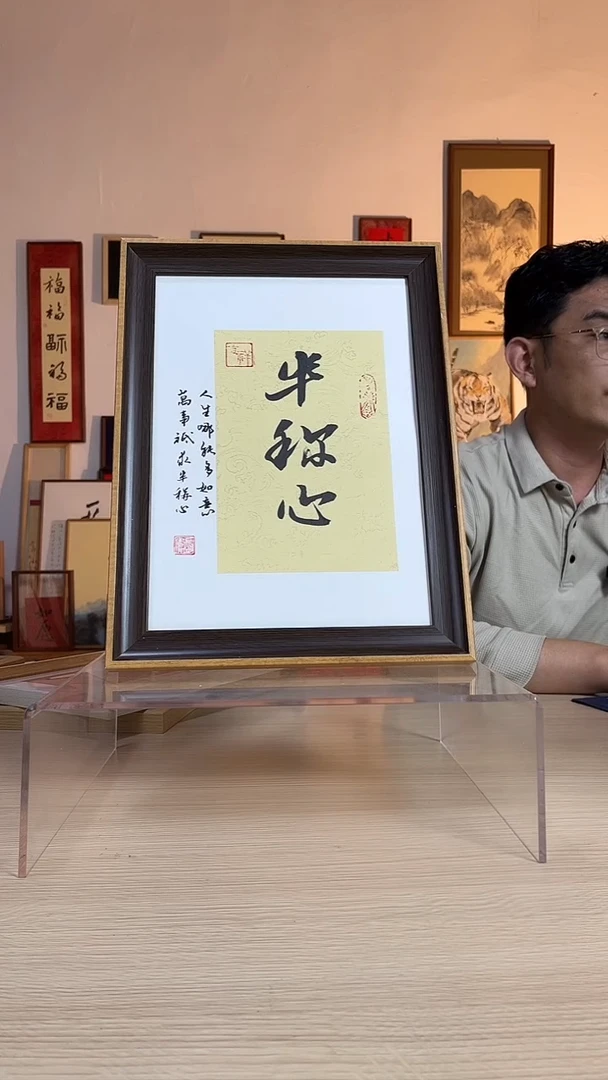 半称心
人生哪能多如意
萬事祇求半稱心
福福福福